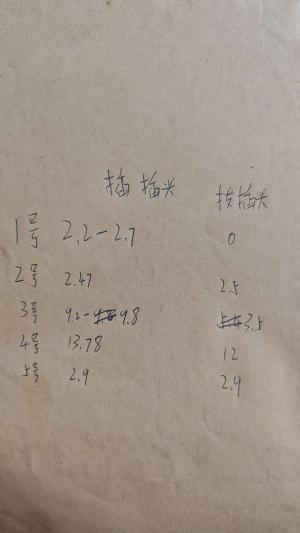 插插头 拔插头
1号 2.2-2.7 0
2号 2.47 2.5
3号 9.2-9.8 3.5
4号 13.78 12
5号 2.9 2.9